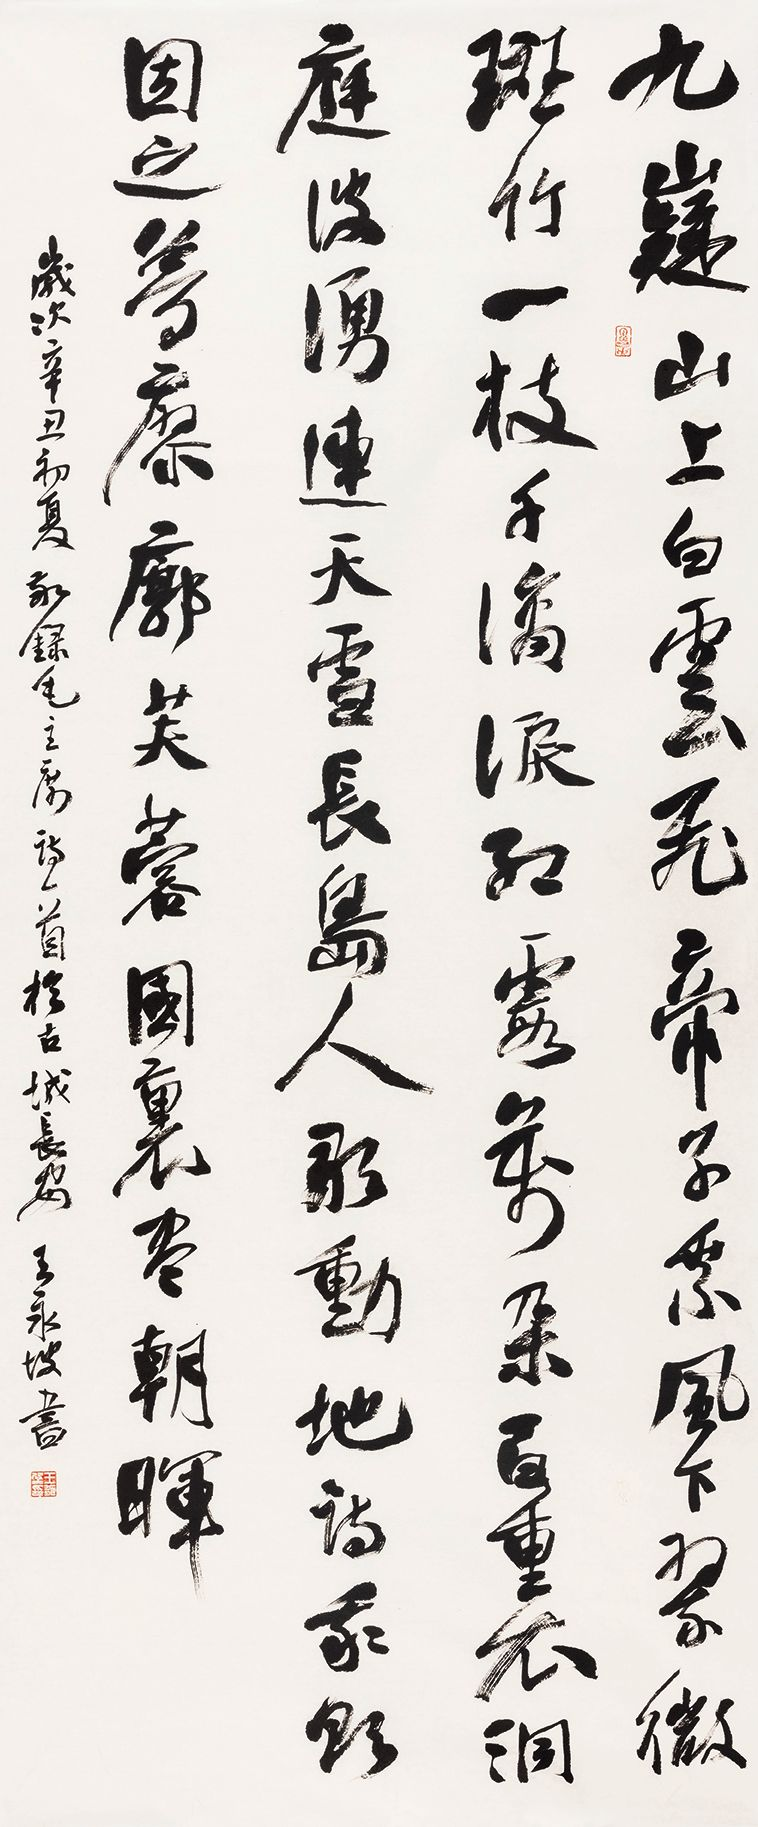 九嶷山上白雲飛帝子乘風下翠微
斑竹一枝千滴淚紅霞萬朵百重衣洞
庭波湧連天雪長島人歌動地詩我欲
因之夢寥廓芙蓉國裏盡朝暉
歲次辛丑初夏敬録毛主席詩一首於古城長安 王永坡書